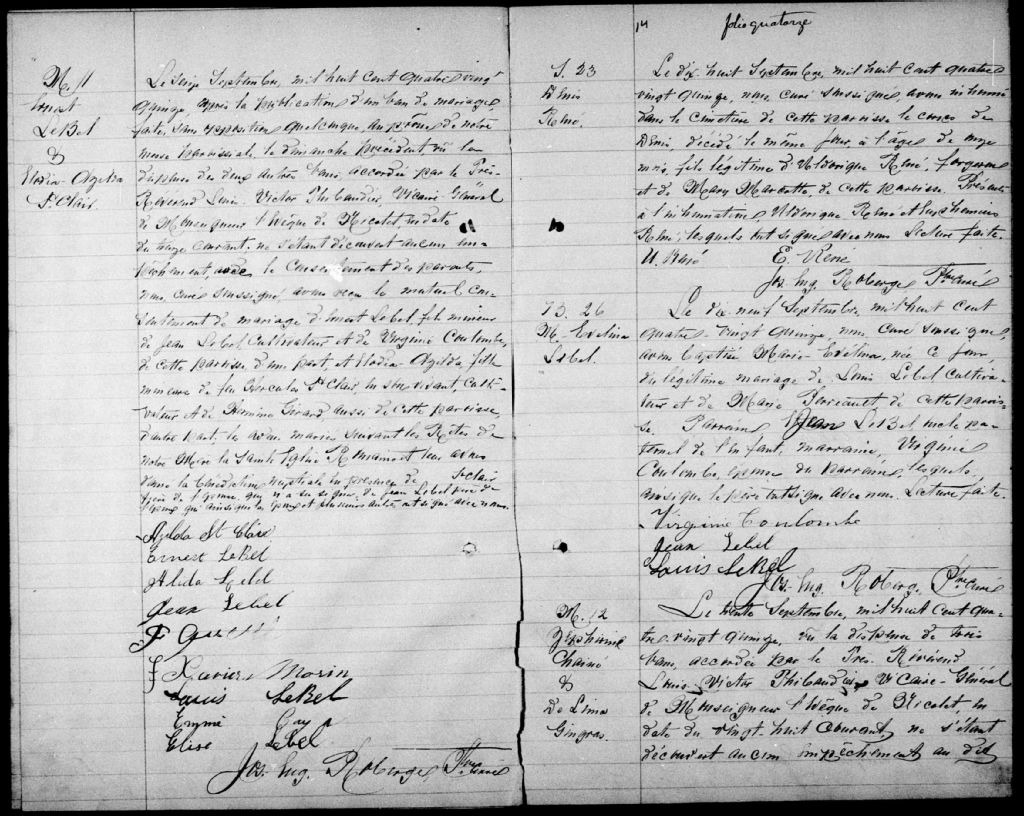 M. 11
Ernest
LeBel
&
Elodia-Azilda
St Clair
Le seize Septembre, mil huit cent quatre vingt
quinze, après la publication d'un ban de mariage
faite, sans opposition quelconque, au prône de notre
messe paroissiale, le dimanche précédent, vu la
dispense des deux autres bans accordée par le Très-
Révérend Louis Victor Thibaudier, Vicaire Général
de Monseigneur l'Evêque de Nicolet, en date
du treize courant, ne s'étant découvert aucun em-
pêchement, avec le consentement des parents,
nous, curé soussigné, avons reçu le mutuel con-
sentement de mariage d'Ernest Lebel, fils mineur
de Jean Lebel Cultivateur et de Virginie Coulombe,
de cette paroisse d'une part, et Elodia Azilda fille
mineure de feu Hercules St Clair, en son vivant, culti-
vateur et de Girard, aussi de cette paroisse,
d'autre part, les avons mariés suivant les Rites de
notre Mère la Sainte Eglise Romaine et leur avons
donné la bénédiction nuptiale en présence de St clair
frère de l'épouse, qui n'a su signer, de Jean Lebel père de
l'époux qui ainsi que les époux et plusieurs autres ont signé avec nous.
Azilda St Clair
Ernest LeBel
Alida Lebel
Jean Lebel
F Xavier Morin
Louis LeBel
Emma
Elise Lebel
Jos. Eug. Roberge, Ptre curé
14 folio quatorze
S. 23
Denis
René.
Le dix huit Septembre, mil huit cent quatre
vingt quinze, nous, curé soussigné, avons inhumé
dans le cimetière de cette paroisse le corps de
Denis, décédé le même jour à l'âge de onze
mois, fils légitime d'Uldorique René, forgeron
et de Mary Marcotte, de cette paroisse. Présents
à l'inhumation Uldorique René et Euphémius
René, lesquels ont signé avec nous. Lecture faite.
U. René E. Rene
Jos. Eug. Roberge Ptre curé
B. 26
M. Evelina
Lebel.
Le dix neuf Septembre, mil huit cent
quatre vingt quinze, nous, curé soussigné,
avons baptisé Marie-Evélina, née ce jour
du légitime mariage de Louis Lebel cultiva-
teur et de Marie Therieault de cette parois-
se. Parrain Jean LeBel oncle pa-
ternel de l'enfant, marraine, Virginie
Coulombe, épouse du parrain, lesquels
ainsi que le père ont signé avec nous. Lecture faite.
Virginie Coulombe
Jean Lebel
Louis LeBel
Jos. Eug. Roberge, Ptre Curé
M. 12
Zéphirin
Chainé
&
De Lima
Gingras.
Le trente Septembre, mil huit cent qua-
tre vingt quinze, vu la dispense de trois
bans, accordée par le Très Révérend
Louis Victor Thibaudier, Vicaire-Général
de Monseigneur l'Evêque de Nicolet, en
date du vingt huit courant, ne s'étant
découvert aucun empêchement au dit